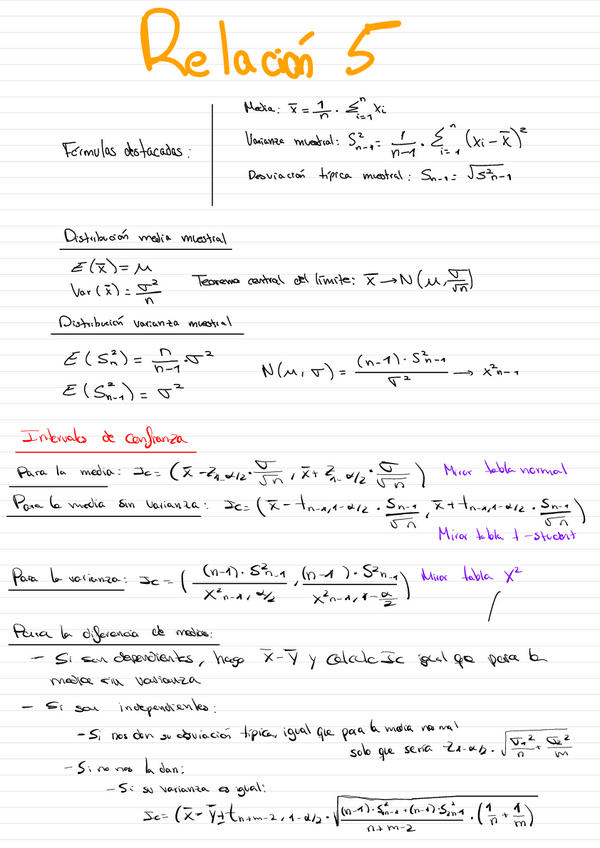 Relación 5
Fórmulas destacadas:
Media: x̄ = 1/n · Σⁿᵢ₌₁ xi
Varianza muestral: S²n-1 = 1/(n-1) · Σⁿᵢ₌₁ (xi - x̄)²
Desviación típica muestral: Sn-1 = √S²n-1
Distribución media muestral
E(x̄) = μ
Var(x̄) = σ²/n
Teorema central del límite: x̄ → N(μ, σ/√n)
Distribución varianza muestral
E(S²n) = n/(n-1) · σ²
E(S²n-1) = σ²
N(μ, σ) = (n-1) · S²n-1 / σ² → x²n-1
Intervalos de confianza
Para la media: Ic = (x̄ - Z1-α/2 · σ/√n, x̄ + Z1-α/2 · σ/√n) Mirar tabla normal
Para la media sin varianza: Ic = (x̄ - tn-1,1-α/2 · Sn-1/√n, x̄ + tn-1,1-α/2 · Sn-1/√n)
Mirar tabla t-student
Para la varianza: Ic = ((n-1) · S²n-1 / X²n-1,α/2, (n-1) · S²n-1 / X²n-1,1-α/2) Mirar tabla X²
Para la diferencia de medias:
- Si son dependientes, hago x̄-ȳ y calculo Ic igual que para la
media sin varianza
- Si son independientes:
- Si nos dan su desviación típica, igual que para la media normal
solo que sería Z1-α/2 · √(σ1²/n + σ2²/m)
- Si no nos la dan:
- Si su varianza es igual:
Ic = (x̄ - ȳ ± tn+m-2, 1-α/2 · √((n-1)·S²n-1 + (n-1)·S²n-1 / n+m-2 · (1/n + 1/m))